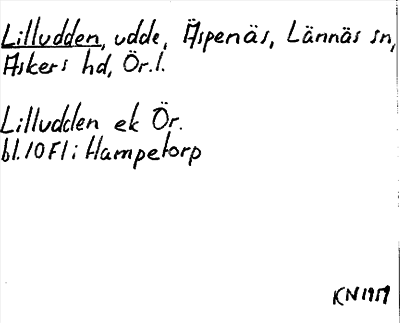 Lilludden, udde, Äspenäs, Lännäs sn,
Askers hd, Ör.l.
Lilludden ek Ör.
bl. 10 F1 i Hampetorp
KN 1959